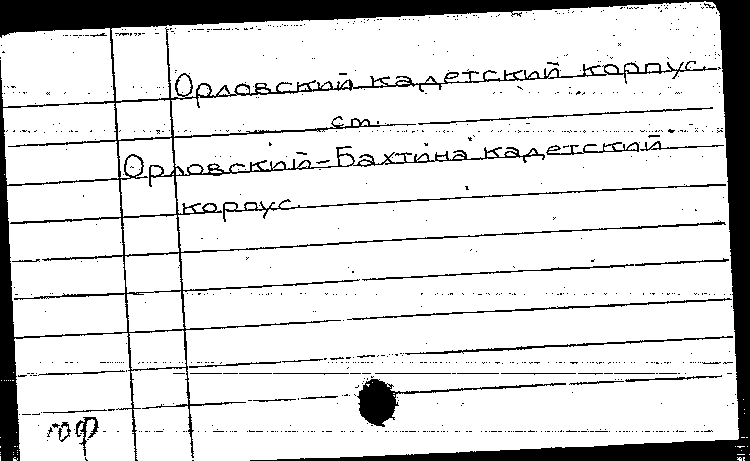 Орловский кадетский корпус.
ст.
Орловский-Бахтина кадетский
корпус.